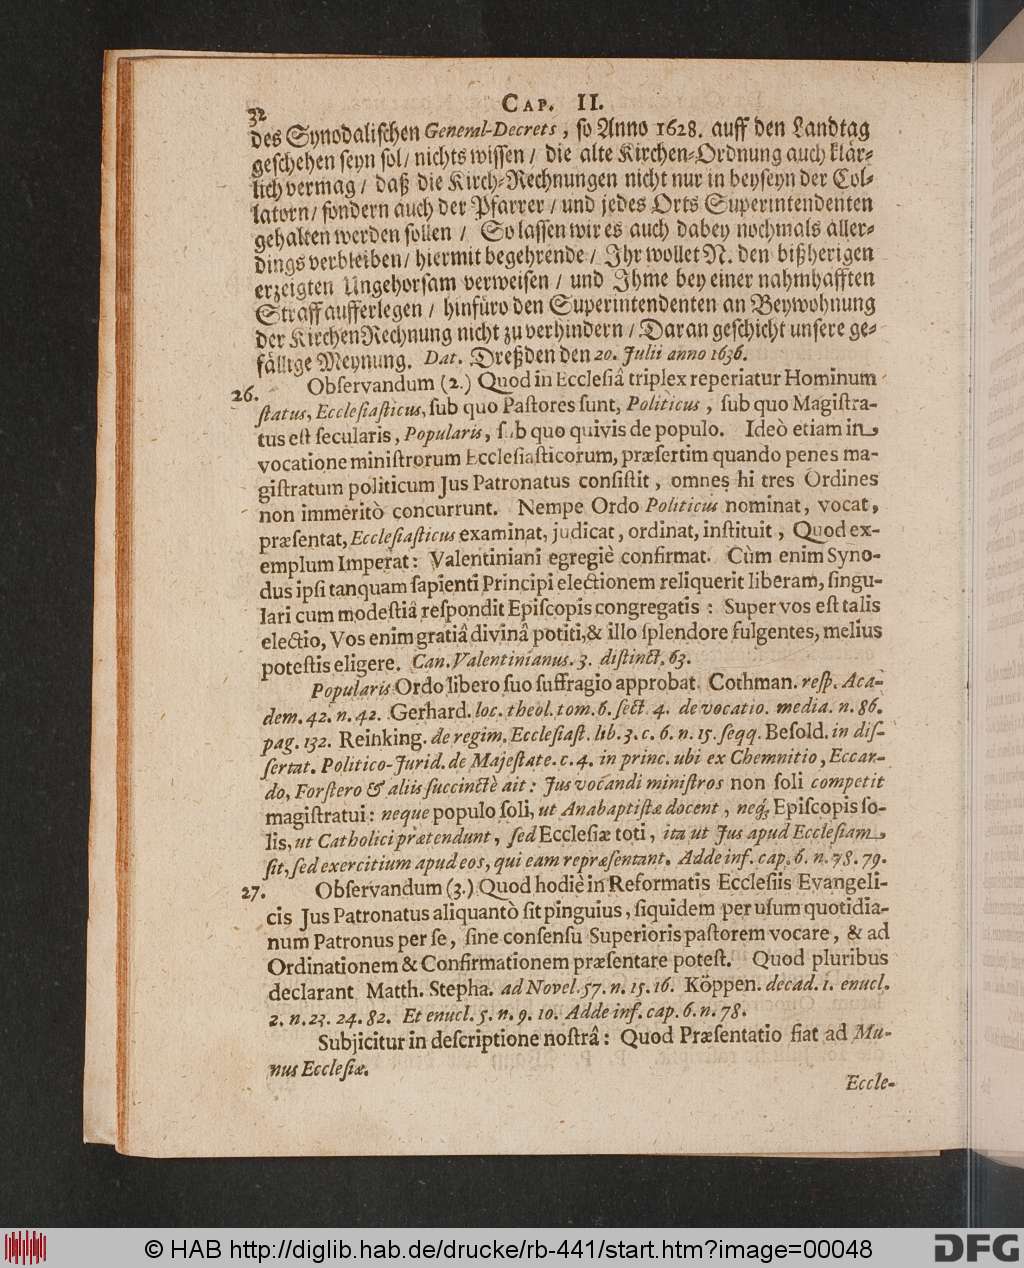 32
CAP. II.
des Synodalischen General-Decrets, so Anno 1628. auff den Landtag
geschehen seyn sol/ nichts wissen/ die alte Kirchen-Ordnung auch klär-
lich vermag/ daß die Kirch-Rechnungen nicht nur in beyseyn der Col-
latorn/ sondern auch der Pfarrer/ und jedes Orts Superintendenten
gehalten werden sollen/ So lassen wir es auch dabey nochmals aller-
dings verbleiben/ hiermit begehrende/ Ihr wollet N. den bißherigen
erzeigten Ungehorsam verweisen/ und Ihme bey einer nahmhafften
Straff aufferlegen/ hinfüro den Superintendenten an Beywohnung
der KirchenRechnung nicht zu verhindern/ Daran geschicht unsere ge-
fällige Meynung. Dat. Dreßden den 20. Julii anno 1636.
26. Obſervandum (2.) Quod in Eccleſiâ triplex reperiatur Hominum
ſtatus, Eccleſiaſticus, ſub quo Paſtores ſunt, Politicus, ſub quo Magiſtra-
tus eſt ſecularis, Popularis, ſub quo quivis de populo. Ideò etiam in
vocatione miniſtrorum Eccleſiaſticorum, præſertim quando penes ma-
giſtratum politicum Jus Patronatus conſiſtit, omnes hi tres Ordines
non immeritò concurrunt. Nempe Ordo Politicus nominat, vocat,
præſentat, Eccleſiaſticus examinat, judicat, ordinat, inſtituit, Quod ex-
emplum Imperat: Valentiniani egregiè confirmat. Cùm enim Syno-
dus ipſi tanquam ſapienti Principi electionem reliquerit liberam, ſingu-
lari cum modeſtiâ reſpondit Epiſcopis congregatis: Super vos eſt talis
electio, Vos enim gratiâ divinâ potiti, & illo ſplendore fulgentes, melius
poteſtis eligere. Can. Valentinianus. 3. diſtinct. 63.
Popularis Ordo libero ſuo ſuffragio approbat. Cothman. reſp. Aca-
dem. 42. n. 42. Gerhard. loc. theol. tom. 6. ſect. 4. de vocatio. media. n. 86.
pag. 132. Reinking. de regim. Eccleſiaſt. lib. 3. c. 6. n. 15. ſeqq. Beſold. in diſ-
ſertat. Politico-Jurid. de Majeſtate. c. 4. in princ. ubi ex Chemnitio, Eccar-
do, Forſtero & aliis ſuccinctè ait: Jus vocandi miniſtros non ſoli competit
magiſtratui: neque populo ſoli, ut Anabaptiſtæ docent, neq́; Epiſcopis ſo-
lis, ut Catholici prætendunt, ſed Eccleſiæ toti, ita ut Jus apud Eccleſiam
ſit, ſed exercitium apud eos, qui eam repræſentant. Adde inf. cap. 6. n. 78. 79.
27. Obſervandum (3.) Quod hodiè in Reformatis Eccleſiis Evangeli-
cis Jus Patronatus aliquantò ſit pinguius, ſiquidem per uſum quotidia-
num Patronus per ſe, ſine conſenſu Superioris paſtorem vocare, & ad
Ordinationem & Confirmationem præſentare poteſt. Quod pluribus
declarant Matth. Stepha. ad Novel. 57. n. 15. 16. Köppen. decad. 1. enucl.
2. n. 23. 24. 82. Et enucl. 5. n. 9. 10. Adde inf. cap. 6. n. 78.
Subjicitur in deſcriptione noſtrâ: Quod Præſentatio fiat ad Mu-
nus Eccleſiæ.
Eccle-
© HAB http://diglib.hab.de/drucke/rb-441/start.htm?image=00048
DFG